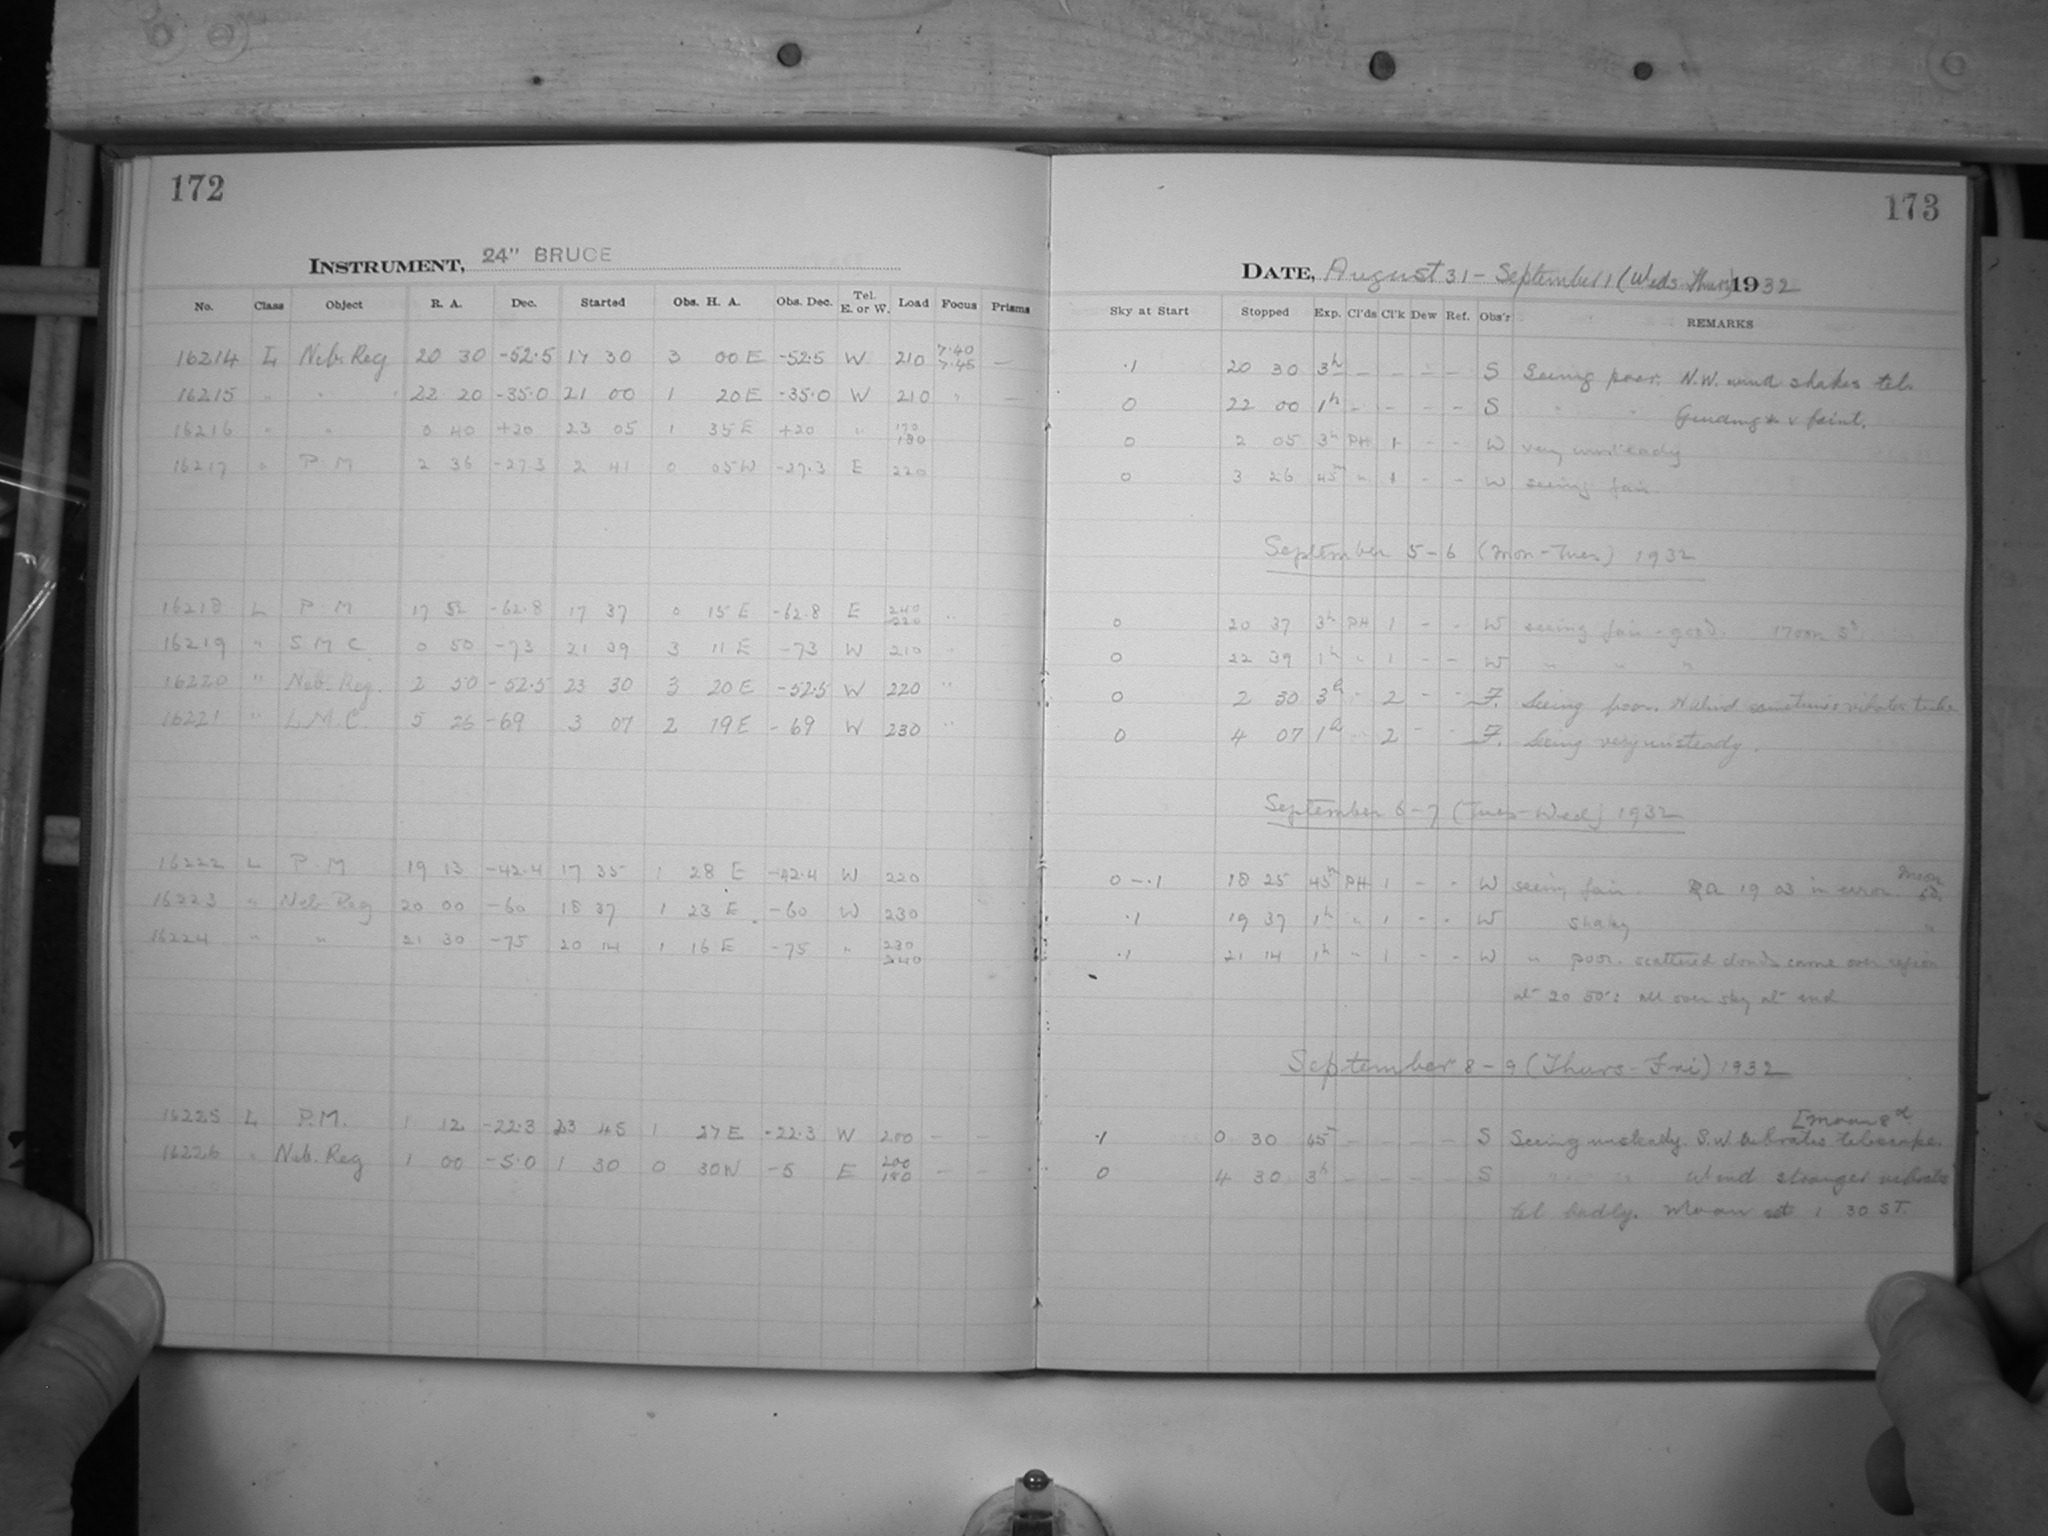 172
INSTRUMENT, 24" BRUCE
No. Class Object R. A. Dec. Started Obs. H. A. Obs. Dec. Tel. E. or W. Load Focus Prisms
16214 L Neb. Reg 20 30 -52.5 17 30 3 00 E -52.5 W 210 7.40 7.45 —
16215 " " 22 20 -35.0 21 00 1 20 E -35.0 W 210 " —
16216 " " 0 40 +20 23 05 1 35 E +20 " 170 180
16217 " P. M 2 36 -27.3 2 41 0 05 W -27.3 E 220
16218 L P. M 17 52 -62.8 17 37 0 15 E -62.8 E 240 220 "
16219 " S M C. 0 50 -73 21 39 3 11 E -73 W 210 "
16220 " Neb. Reg. 2 50 -52.5 23 30 3 20 E -52.5 W 220 "
16221 " L.M.C. 5 26 -69 3 07 2 19 E -69 W 230 "
16222 L P. M 19 13 -42.4 17 35 1 28 E -42.4 W 220
16223 " Neb Reg 20 00 -60 18 37 1 23 E -60 W 230
16224 " " 21 30 -75 20 14 1 16 E -75 " 230 240
16225 L P.M. 1 12 -22.3 23 45 1 27 E -22.3 W 200 — —
16226 " Neb. Reg 1 00 -5.0 1 30 0 30 W -5 E 200 180 — —
173
DATE, August 31 - September 1 (Weds-Thurs) 1932
Sky at Start Stopped Exp. Cl'ds Cl'k Dew Ref. Obs'r REMARKS
.1 20 30 3h — — — — S Seeing poor. N.W. wind shakes tel.
0 22 00 1h - - - - S " " Guiding * v faint.
0 2 05 3h PH 1 - - W very unsteady
0 3 26 45m " 1 - - W seeing fair.
September 5-6 (Mon-Tues) 1932
0 20 37 3h PH 1 - - W seeing fair - good. Moon 5d.
0 22 39 1h " 1 - - W " " "
0 2 30 3h " 2 - - F. Seeing poor. N Wind sometimes vibrates tube
0 4 07 1h " 2 - - F. Seeing very unsteady.
September 6-7 (Tues-Wed) 1932
0-.1 18 25 45m PH 1 - - W seeing fair. RA 19 03 in error. Moon 6d.
.1 19 37 1h " 1 - - W shaky "
.1 21 14 1h " 1 - - W " poor. scattered clouds came over region
at 20 50: all over sky at end
September 8-9 (Thurs-Fri) 1932
[Moon 8d
.1 0 30 45m — — — — S Seeing unsteady. S.W vibrates telescope.
0 4 30 3h — — — — S " " Wind stronger vibrates
tel badly. Moon set 1 30 ST.